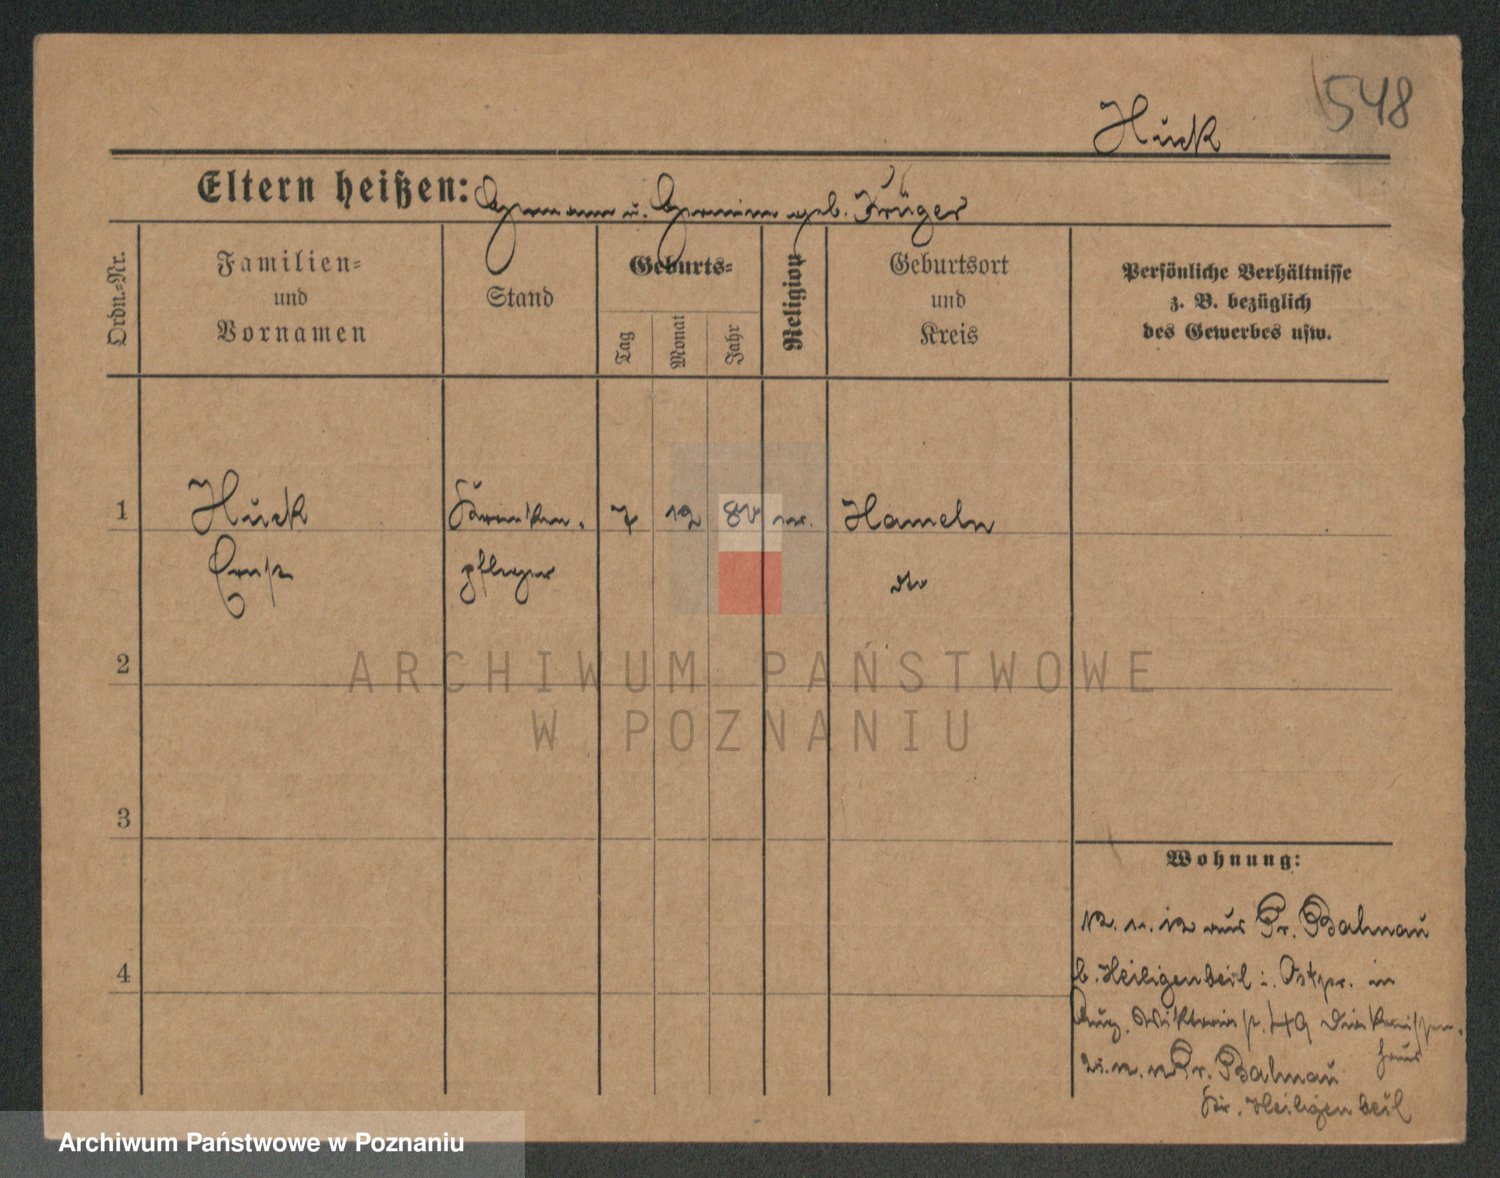 548
Huck
Eltern heißen: Hermann u. Hermine geb. Krüger
Ordn.-Nr.
Familien-
und
Vornamen
Stand
Geburts-
Tag
Monat
Jahr
Religion
Geburtsort
und
Kreis
Persönliche Verhältnisse
z. B. bezüglich
des Gewerbes usw.
1
Huck
Ernst
Kranken-
pfleger
7
12
Hameln
dto
2
3
4
Wohnung:
12. 11. 12 aus Pr. Bahnau
b. Heiligenbeil i. Ostpr. in
49 Diakonissen-
haus
Pr. Bahnau
Kr. Heiligenbeil
ARCHIWUM PAŃSTWOWE
W POZNANIU
Archiwum Państwowe w Poznaniu